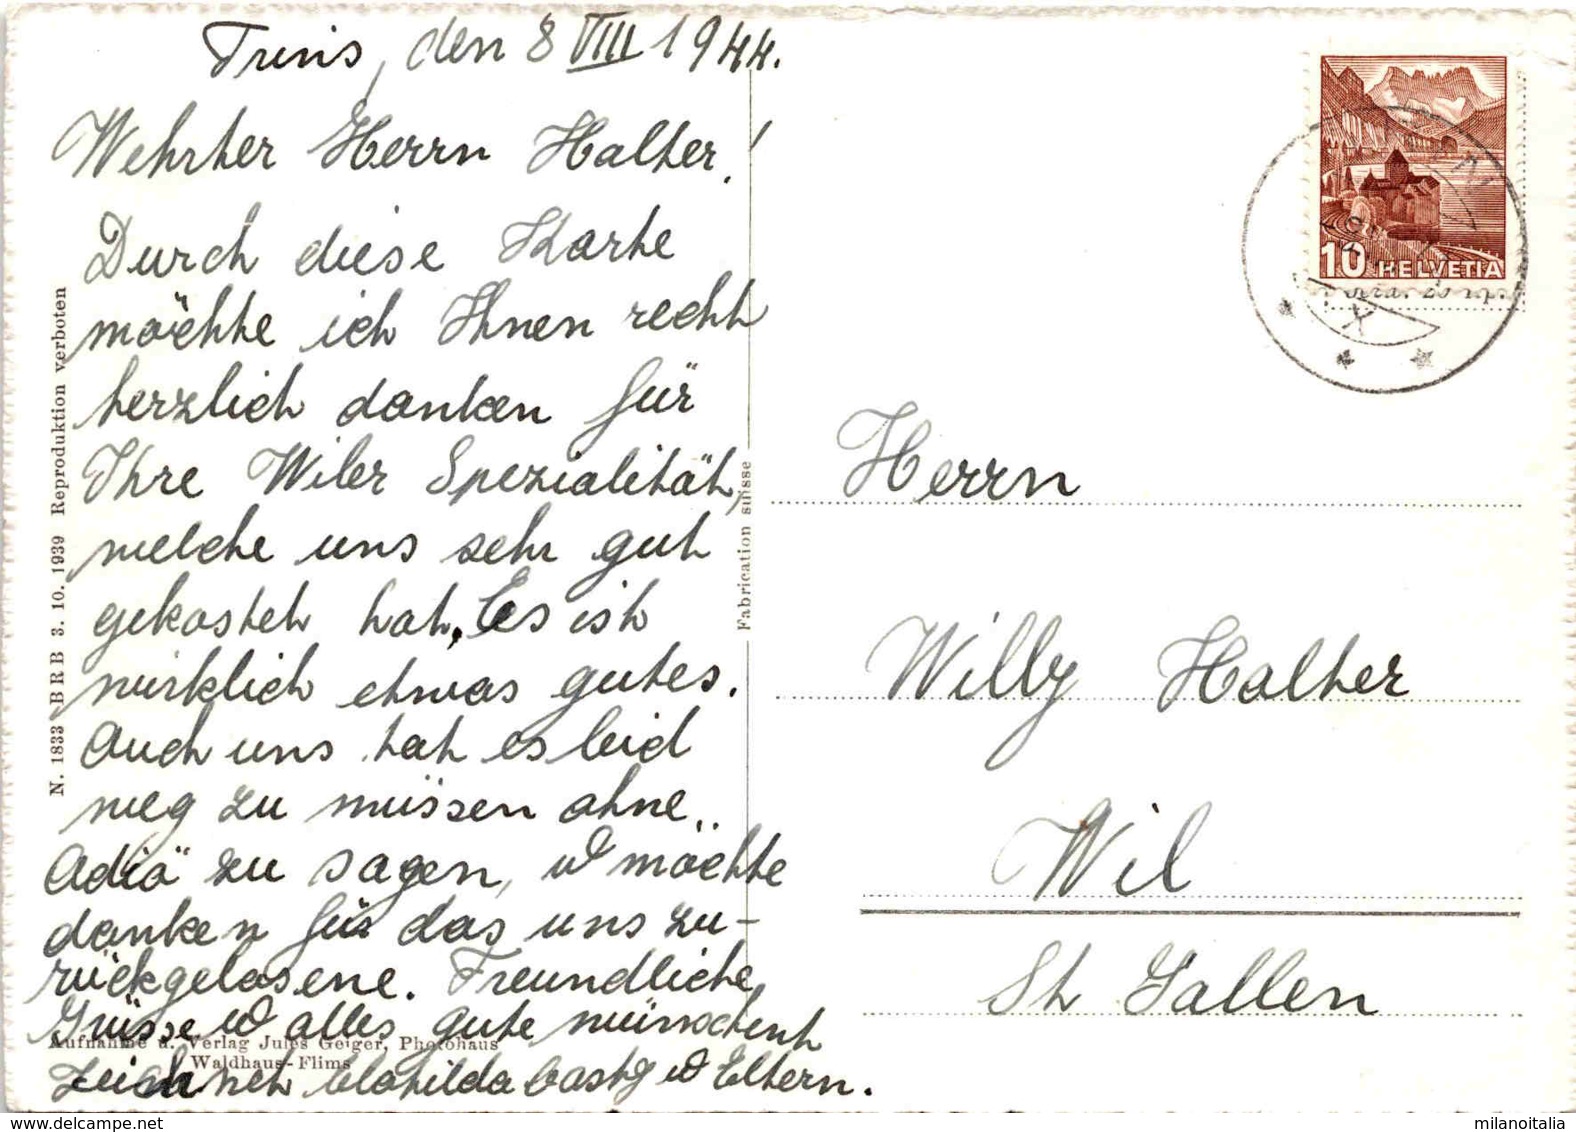 Trins, den 8 VIII 1944.
Wehrter Herrn Halter!
Durch diese Karte
möchte ich Ihnen recht
herzlich danken für
Ihre Wiler Spezialität,
welche uns sehr gut
gekostet hat. Es ist
wirklich etwas gutes.
Auch uns tat es leid
weg zu müssen ohne
"Adiö" zu sagen, u möchte
danken für das uns zu-
rückgelasene. Freundliche
Grüsse u alles gute wünschent
zeichnet Clotilda u Eltern.
N. 1833 BRB 3. 10. 1939 Reproduktion verboten
Aufnahme u. Verlag Jules Geiger, Photohaus
Waldhaus-Flims
Fabrication suisse
10 HELVETIA
Herrn
Willy Halter
Wil
St Gallen
milanoitalia
www.delcampe.net